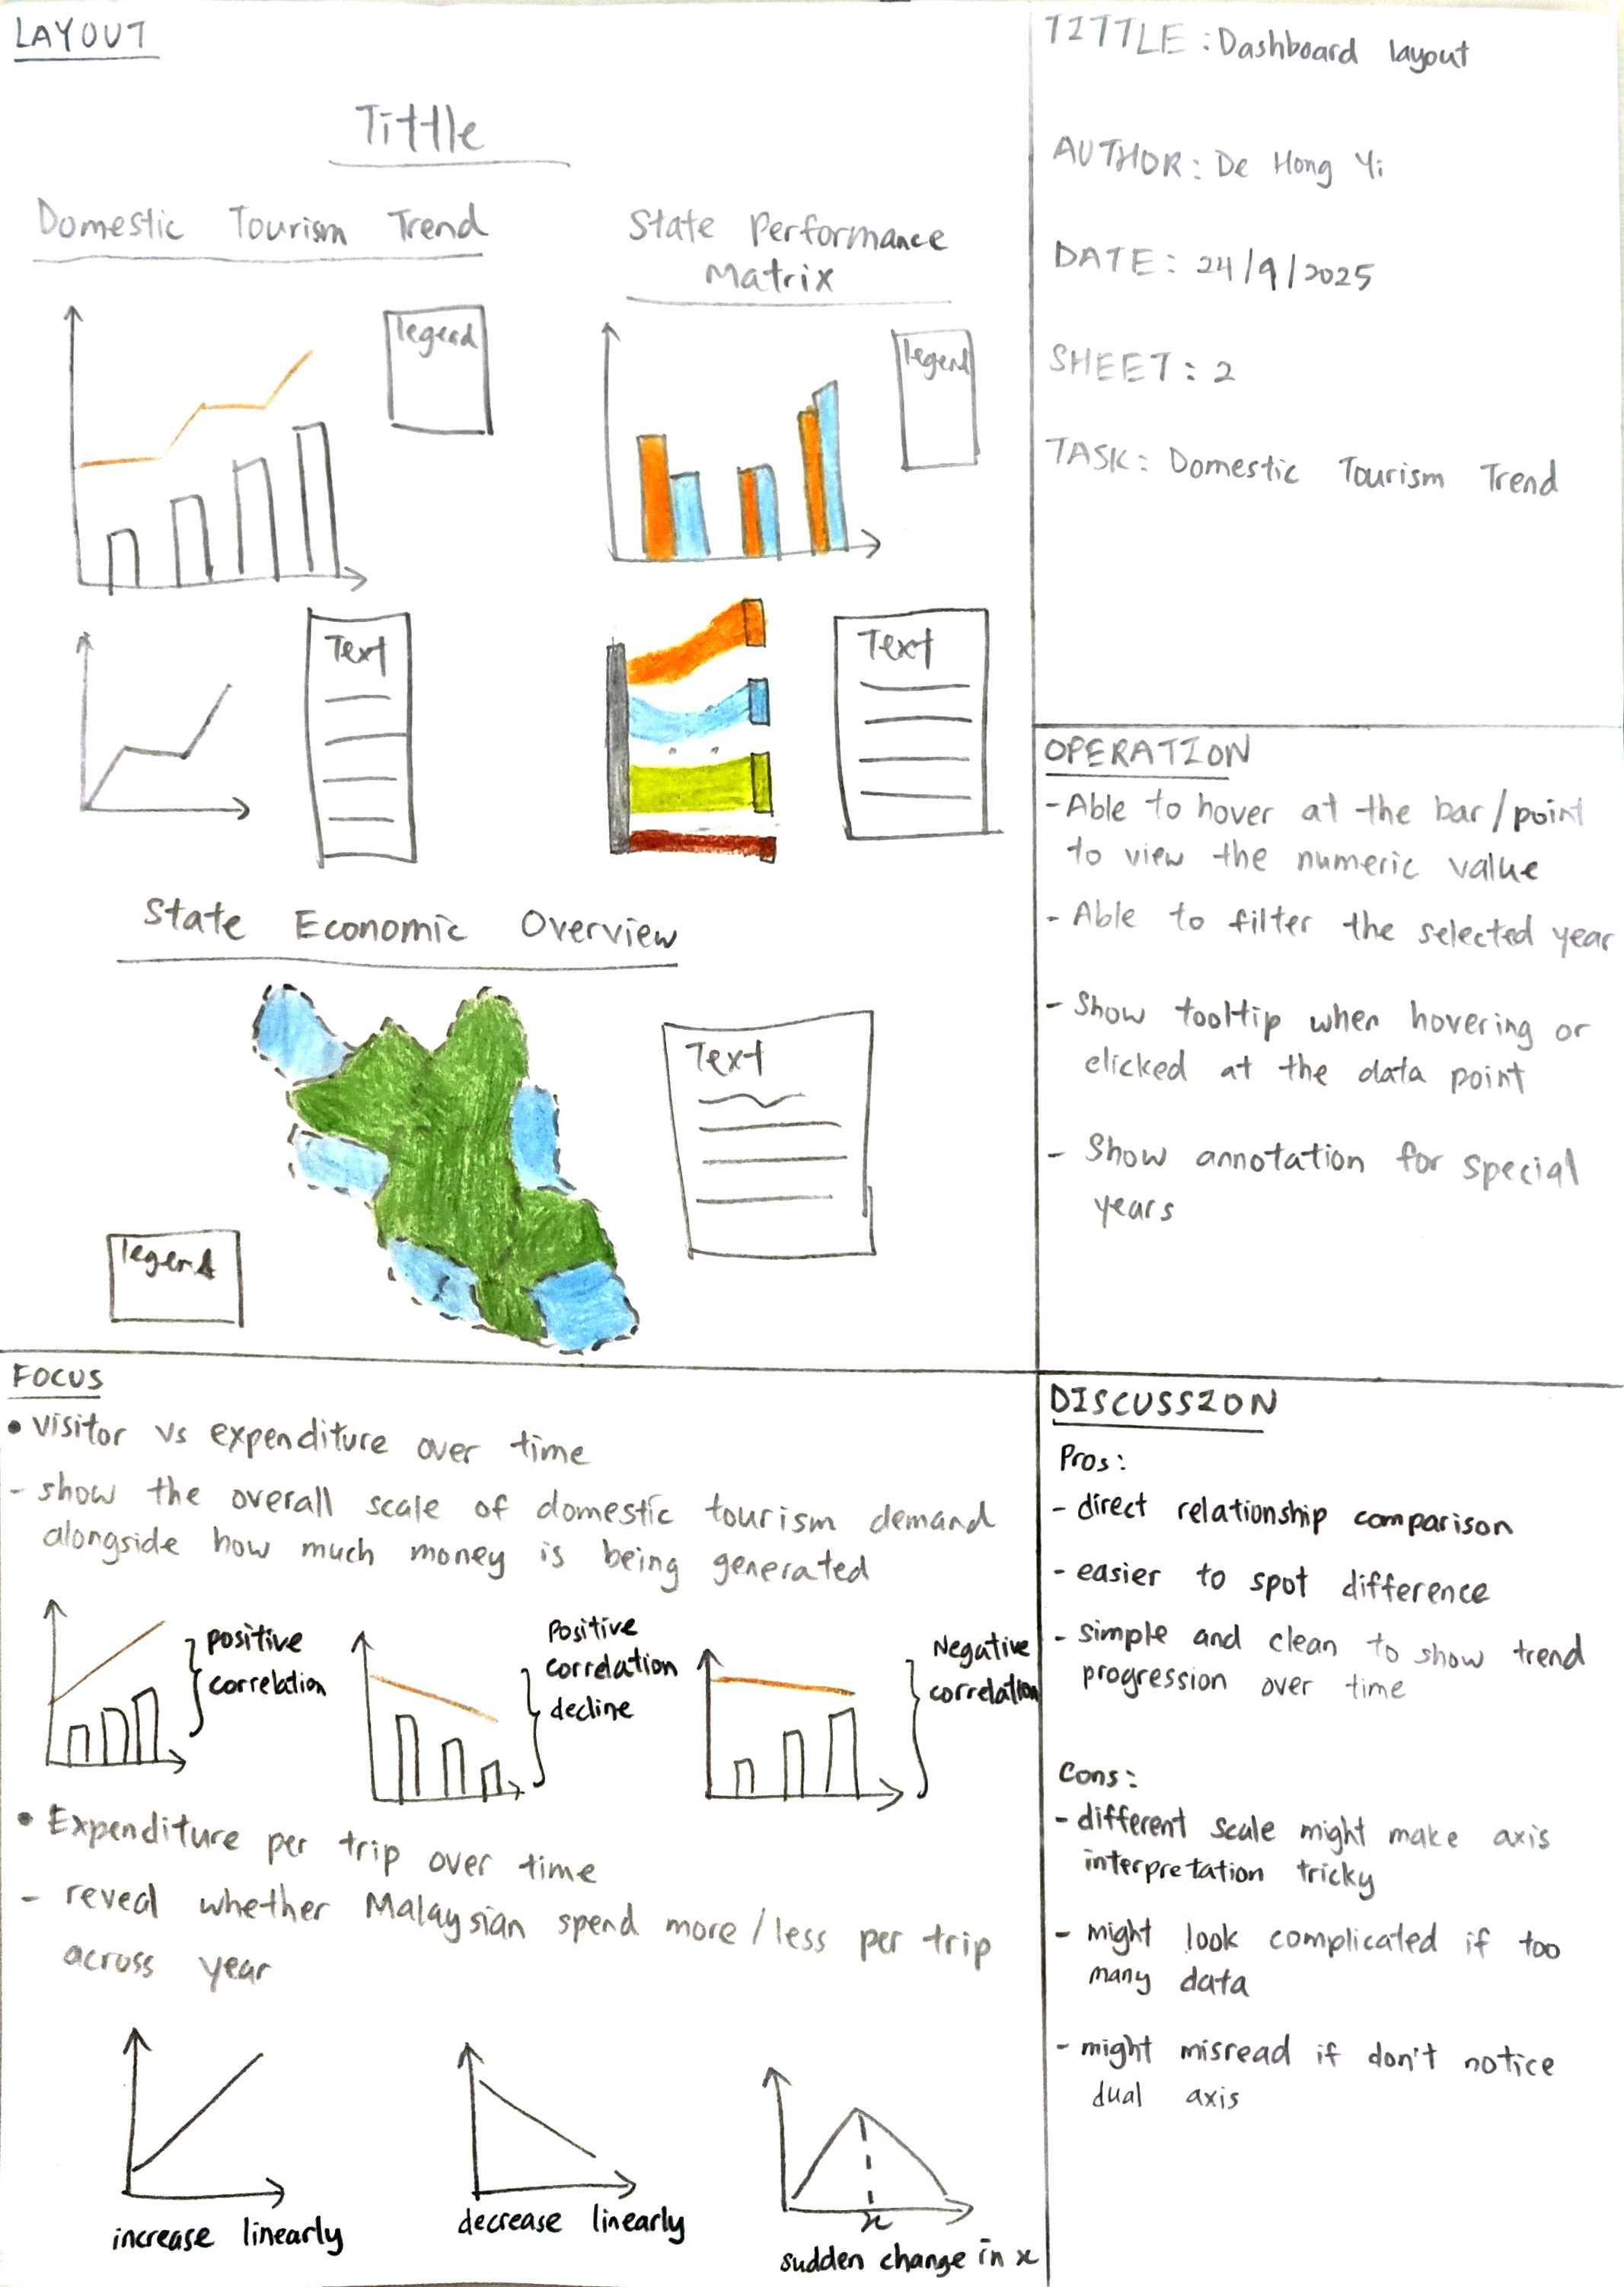 LAYOUT
Tittle
Domestic Tourism Trend
legend
State Performance
Matrix
legend
Text
Text
State Economic Overview
Text
legend
TITTLE : Dashboard layout
AUTHOR : De Hong Yi
DATE : 24/9/2025
SHEET : 2
TASK : Domestic Tourism Trend
OPERATION
- Able to hover at the bar/point
to view the numeric value
- Able to filter the selected year
- Show tooltip when hovering or
clicked at the data point
- Show annotation for special
years
FOCUS
• Visitor vs expenditure over time
- show the overall scale of domestic tourism demand
alongside how much money is being generated
positive
correlation
Positive
correlation
decline
Negative
correlation
• Expenditure per trip over time
- reveal whether Malaysian spend more/less per trip
across year
increase linearly
decrease linearly
x
sudden change in x
DISCUSSION
Pros :
- direct relationship comparison
- easier to spot difference
- simple and clean to show trend
progression over time
Cons :
- different scale might make axis
interpretation tricky
- might look complicated if too
many data
- might misread if don't notice
dual axis